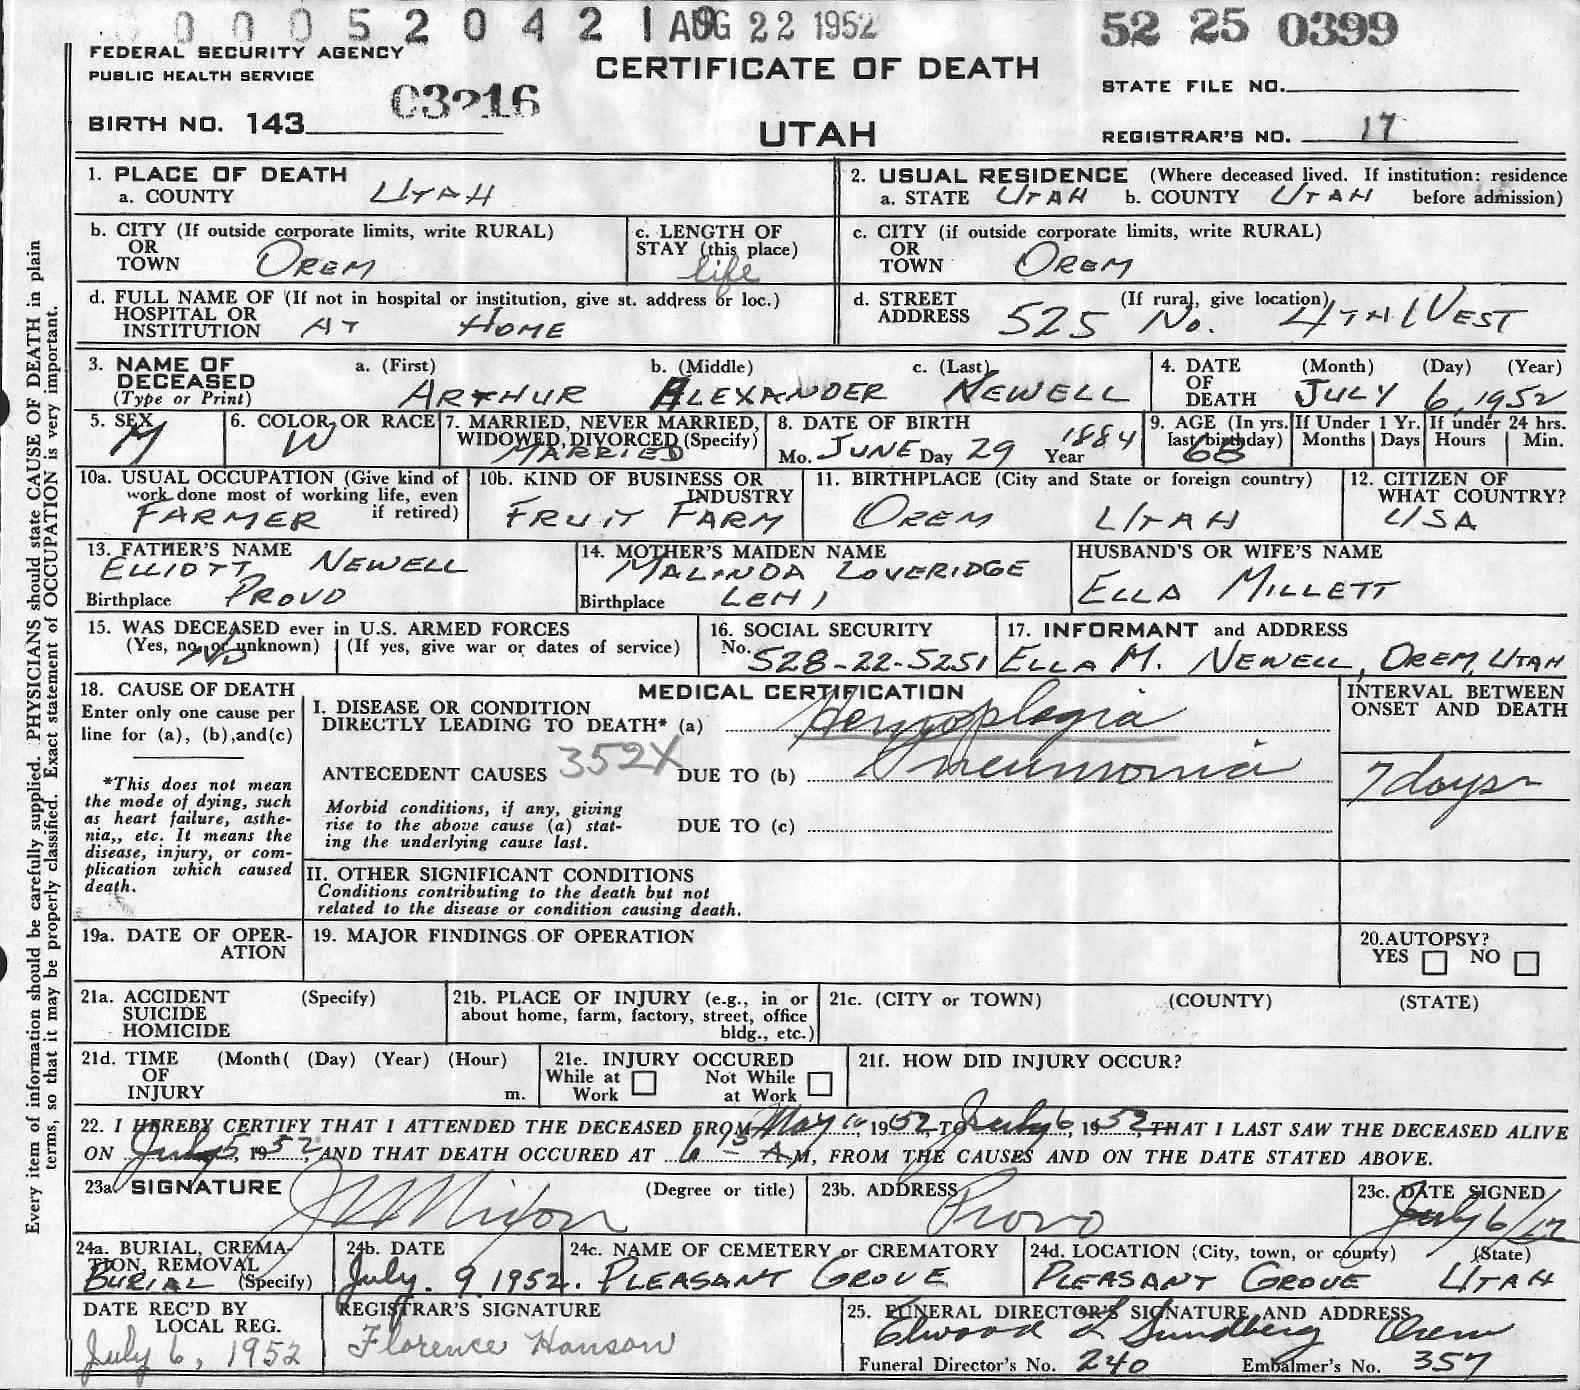 0 0 0 5 2 0 4 2 1 AUG 22 1952
52 25 0399
FEDERAL SECURITY AGENCY
PUBLIC HEALTH SERVICE
CERTIFICATE OF DEATH
STATE FILE NO.
03216
BIRTH NO. 143
UTAH
REGISTRAR'S NO. 17
Every item of information should be carefully supplied. PHYSICIANS should state CAUSE OF DEATH in plain
terms, so that it may be properly classified. Exact statement of OCCUPATION is very important.
1. PLACE OF DEATH
a. COUNTY UTAH
2. USUAL RESIDENCE (Where deceased lived. If institution: residence
a. STATE UTAH b. COUNTY UTAH before admission)
b. CITY (If outside corporate limits, write RURAL)
OR
TOWN OREM
c. LENGTH OF
STAY (this place)
life
c. CITY (if outside corporate limits, write RURAL)
OR
TOWN OREM
d. FULL NAME OF (If not in hospital or institution, give st. address or loc.)
HOSPITAL OR
INSTITUTION AT HOME
d. STREET (If rural, give location)
ADDRESS 525 No. 4TH WEST
3. NAME OF a. (First) b. (Middle) c. (Last)
DECEASED
(Type or Print) ARTHUR ALEXANDER NEWELL
4. DATE (Month) (Day) (Year)
OF
DEATH JULY 6, 1952
5. SEX
M
6. COLOR OR RACE
W
7. MARRIED, NEVER MARRIED,
WIDOWED, DIVORCED (Specify)
MARRIED
8. DATE OF BIRTH
Mo. JUNE Day 29 Year 1884
9. AGE (In yrs.
last birthday)
68
If Under 1 Yr.
Months Days
If under 24 hrs.
Hours Min.
10a. USUAL OCCUPATION (Give kind of
work done most of working life, even
if retired)
FARMER
10b. KIND OF BUSINESS OR
INDUSTRY
FRUIT FARM
11. BIRTHPLACE (City and State or foreign country)
OREM UTAH
12. CITIZEN OF
WHAT COUNTRY?
USA
13. FATHER'S NAME
ELLIOTT NEWELL
Birthplace PROVO
14. MOTHER'S MAIDEN NAME
MALINDA LOVERIDGE
Birthplace LEHI
HUSBAND'S OR WIFE'S NAME
ELLA MILLETT
15. WAS DECEASED ever in U.S. ARMED FORCES
(Yes, no, or unknown) (If yes, give war or dates of service)
No
16. SOCIAL SECURITY
No. 528-22-5251
17. INFORMANT and ADDRESS
ELLA M. NEWELL, OREM, UTAH
18. CAUSE OF DEATH
Enter only one cause per
line for (a), (b), and (c)
*This does not mean
the mode of dying, such
as heart failure, asthe-
nia,, etc. It means the
disease, injury, or com-
plication which caused
death.
MEDICAL CERTIFICATION
I. DISEASE OR CONDITION
DIRECTLY LEADING TO DEATH* (a) Hemoplegia
ANTECEDENT CAUSES 352X DUE TO (b) Pneumonia
Morbid conditions, if any, giving
rise to the above cause (a) stat-
ing the underlying cause last.
DUE TO (c)
II. OTHER SIGNIFICANT CONDITIONS
Conditions contributing to the death but not
related to the disease or condition causing death.
INTERVAL BETWEEN
ONSET AND DEATH
7 days
19a. DATE OF OPER-
ATION
19. MAJOR FINDINGS OF OPERATION
20. AUTOPSY?
YES NO
21a. ACCIDENT (Specify)
SUICIDE
HOMICIDE
21b. PLACE OF INJURY (e.g., in or
about home, farm, factory, street, office
bldg., etc.)
21c. (CITY or TOWN) (COUNTY) (STATE)
21d. TIME (Month( (Day) (Year) (Hour)
OF
INJURY m.
21e. INJURY OCCURED
While at Work Not While at Work
21f. HOW DID INJURY OCCUR?
22. I HEREBY CERTIFY THAT I ATTENDED THE DECEASED FROM May 10, 1952, TO July 6, 1952, THAT I LAST SAW THE DECEASED ALIVE
ON July 5, 1952 AND THAT DEATH OCCURED AT 6 15 A.M, FROM THE CAUSES AND ON THE DATE STATED ABOVE.
23a. SIGNATURE (Degree or title)
23b. ADDRESS
Provo
23c. DATE SIGNED
July 6/
24a. BURIAL, CREMA-
TION, REMOVAL
BURIAL (Specify)
24b. DATE
July. 9, 1952.
24c. NAME OF CEMETERY or CREMATORY
PLEASANT GROVE
24d. LOCATION (City, town, or county) (State)
PLEASANT GROVE UTAH
DATE REC'D BY
LOCAL REG.
July 6, 1952
REGISTRAR'S SIGNATURE
Florence Hanson
25. FUNERAL DIRECTOR'S SIGNATURE AND ADDRESS
Elwood L Sundberg Orem
Funeral Director's No. 240 Embalmer's No. 357